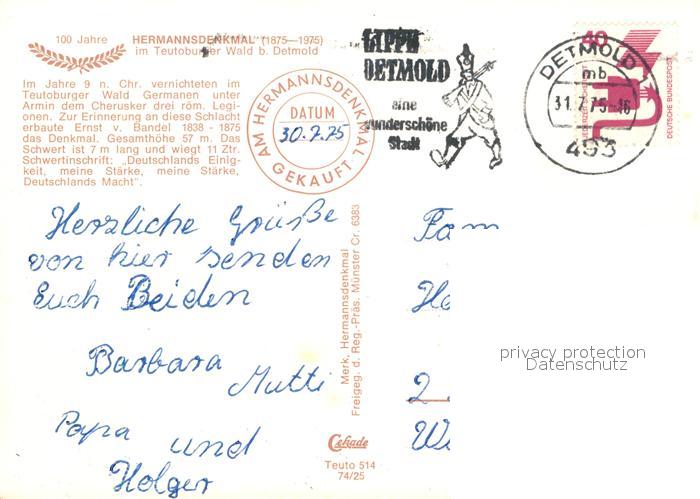 100 Jahre HERMANNSDENKMAL (1875—1975)
im Teutoburger Wald b. Detmold
Im Jahre 9 n. Chr. vernichteten im
Teutoburger Wald Germanen unter
Armin dem Cherusker drei röm. Legi-
onen. Zur Erinnerung an diese Schlacht
erbaute Ernst v. Bandel 1838 - 1875
das Denkmal. Gesamthöhe 57 m. Das
Schwert ist 7 m lang und wiegt 11 Ztr.
Schwertinschrift: „Deutschlands Einig-
keit, meine Stärke, meine Stärke,
Deutschlands Macht".
AM HERMANNSDENKMAL
DATUM
30.7.75
GEKAUFT
LIPPE
DETMOLD
eine
wunderschöne
Stadt
40
DETMOLD
mb
31.7.75-16
493
DEUTSCHE BUNDESPOST
Herzliche Grüße
von hier senden
Euch Beiden
Barbara
Mutti
Papa und
Holger
Merk. Hermannsdenkmal
Freigeg. d. Reg.-Präs. Münster Cr. 6383
Cekade
Teuto 514
74/25
Fam
2
privacy protection
Datenschutz